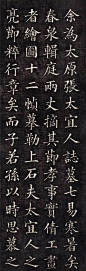 余為太原張太宜人誌墓七易寒暑矣
春泉輯庭兩丈摘其節孝事實倩工畫
者繪圖十二幀摹勒上石夫太宜人之
亮節粹行章矣而子若孫以時思慕之